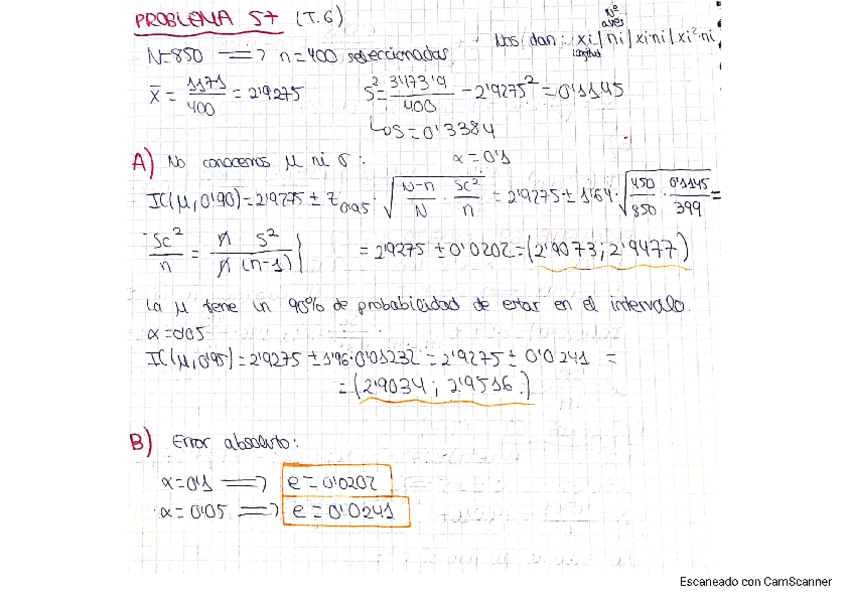 PROBLEMA 57 (T.6)
N=850 ⟹ n=400 seleccionadas
Nos dan: xi | ni | xi·ni | xi²·ni
longitud
Nº aves
x̄ = 1171/400 = 2'9275
s² = 3473'9/400 - 2'9275² = 0'1145
↳ s = 0'3384
A) No conocemos μ ni σ: α = 0'1
IC(μ, 0'90) = 2'9275 ± z₀'₉₅ · √(N-n/N · sc²/n) = 2'9275 ± 1'64 · √(450/850 · 0'1145/399) =
sc²/n = n s²/n (n-1) | = 2'9275 ± 0'0202 = (2'9073; 2'9477)
La μ tiene un 90% de probabilidad de estar en el intervalo.
α = 0'05
IC(μ, 0'95) = 2'9275 ± 1'96 · 0'01232 = 2'9275 ± 0'0241 =
= (2'9034; 2'9516)
B) Error absoluto:
α = 0'1 ⟹ e = 0'0202
α = 0'05 ⟹ e = 0'0241
Escaneado con CamScanner